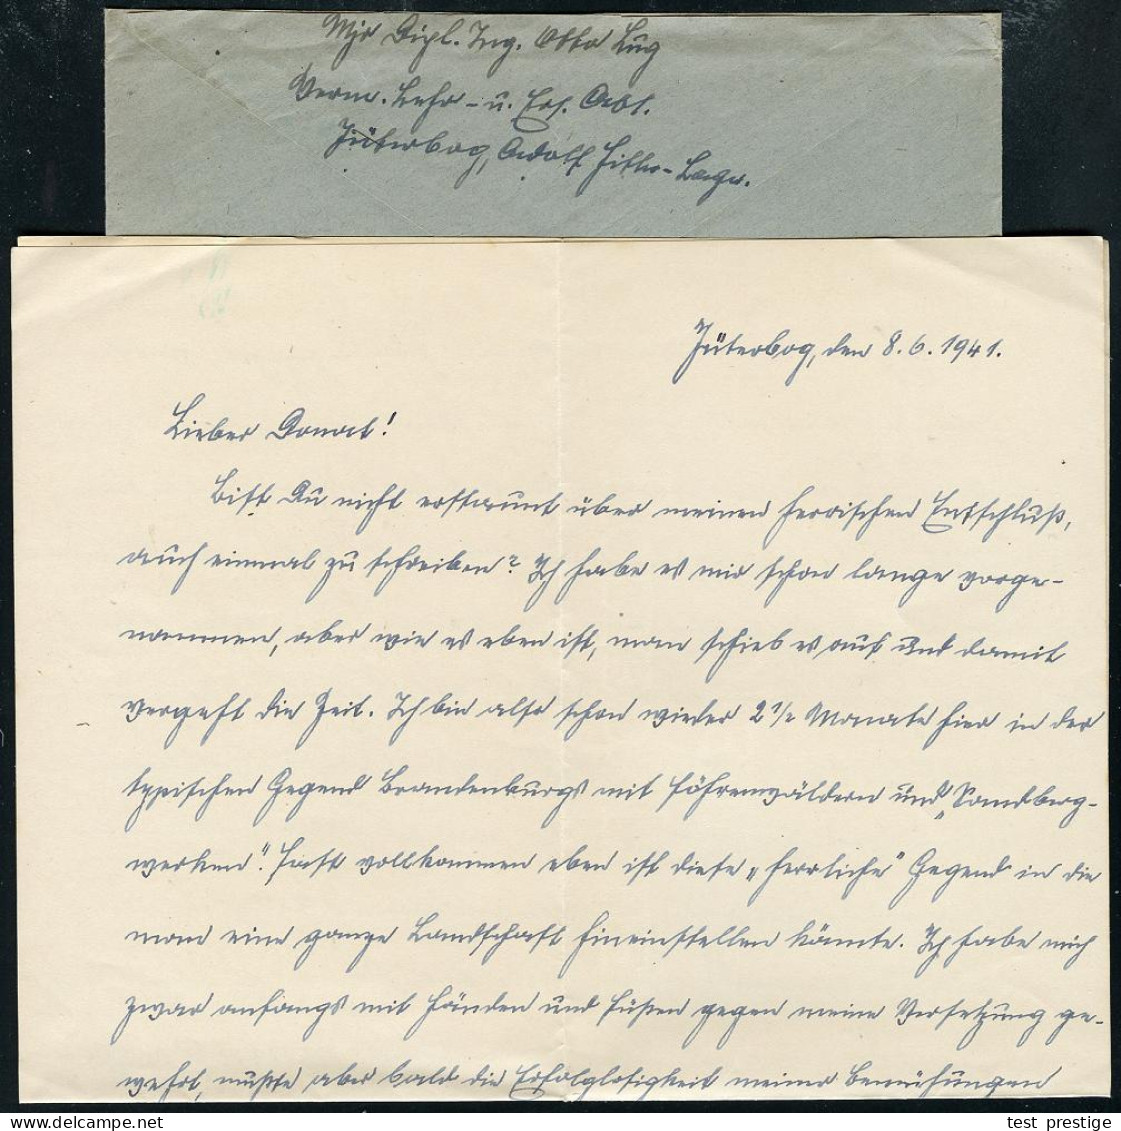 Mjr Dipl. Ing. Otto Lug
Verm. Lehr- u. Ers. Abt.
Jüterbog, Adolf Hitler-Lager.
Jüterbog, den 8.6.1941.
Lieber Donat!
Bist Du nicht erstaunt über meinen heroischen Entschluß,
auch einmal zu schreiben? Ich habe es mir schon lange vorge-
nommen, aber wie es eben ist, man schiebt es auf und damit
vergeht die Zeit. Ich bin also schon wieder 2 1/2 Monate hier in der
typischen Gegend Brandenburgs mit Föhrenwäldern und „Sandberg-
werken". Fast vollkommen eben ist diese „herrliche" Gegend in die
man eine ganze Landschaft hineinstellen könnte. Ich habe mich
zwar anfangs mit Händen und Füßen gegen meine Versetzung ge-
wehrt, mußte aber bald die Erfolglosigkeit meiner Bemühungen
test_prestige